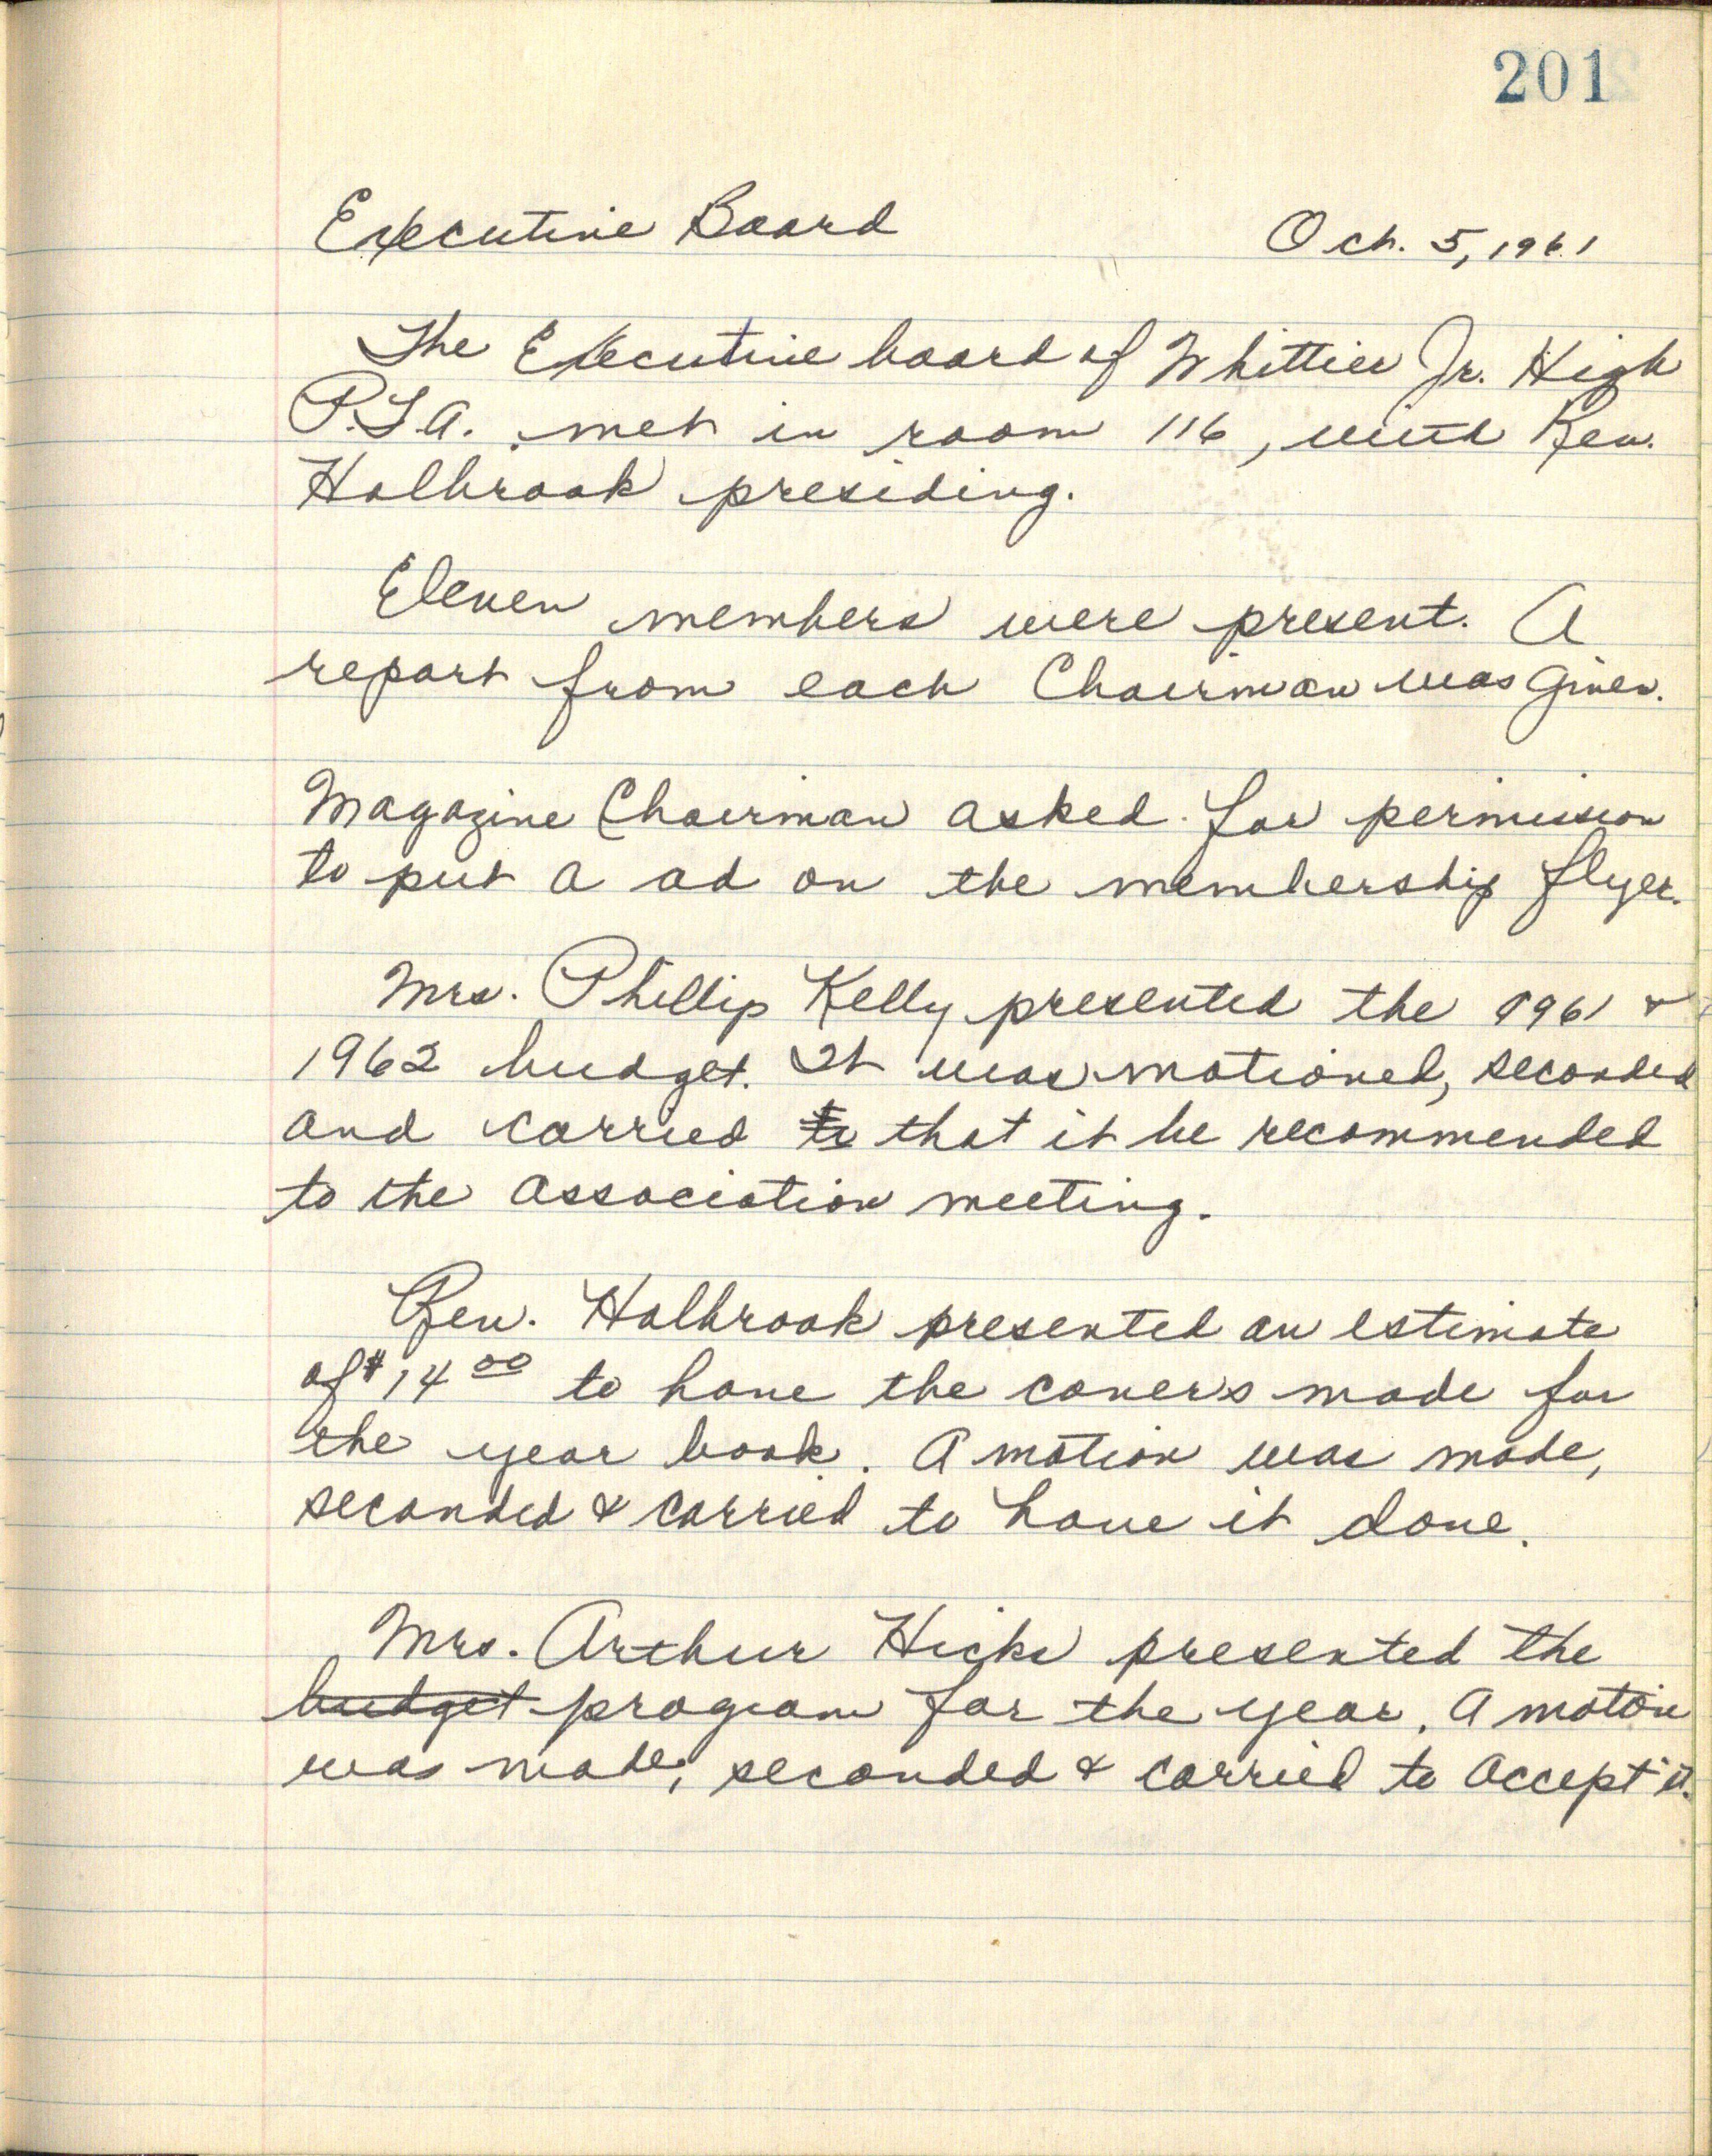 201
Executive Board Oct. 5, 1961
The Executive board of Whittier Jr. High
P.T.A. met in room 116, with Rev.
Holbrook presiding.
Eleven members were present. A
report from each Chairman was given.
Magazine Chairman asked for permission
to put a ad on the membership flyer.
Mrs. Phillip Kelly presented the 1961 &
1962 budget. It was motioned, seconded
and carried to that it be recommended
to the association meeting.
Rev. Holbrook presented an estimate
of $14 00 to have the covers made for
the year book. A motion was made,
seconded & carried to have it done.
Mrs. Arthur Hicks presented the
budget program for the year. A motion
was made, seconded & carried to accept it.